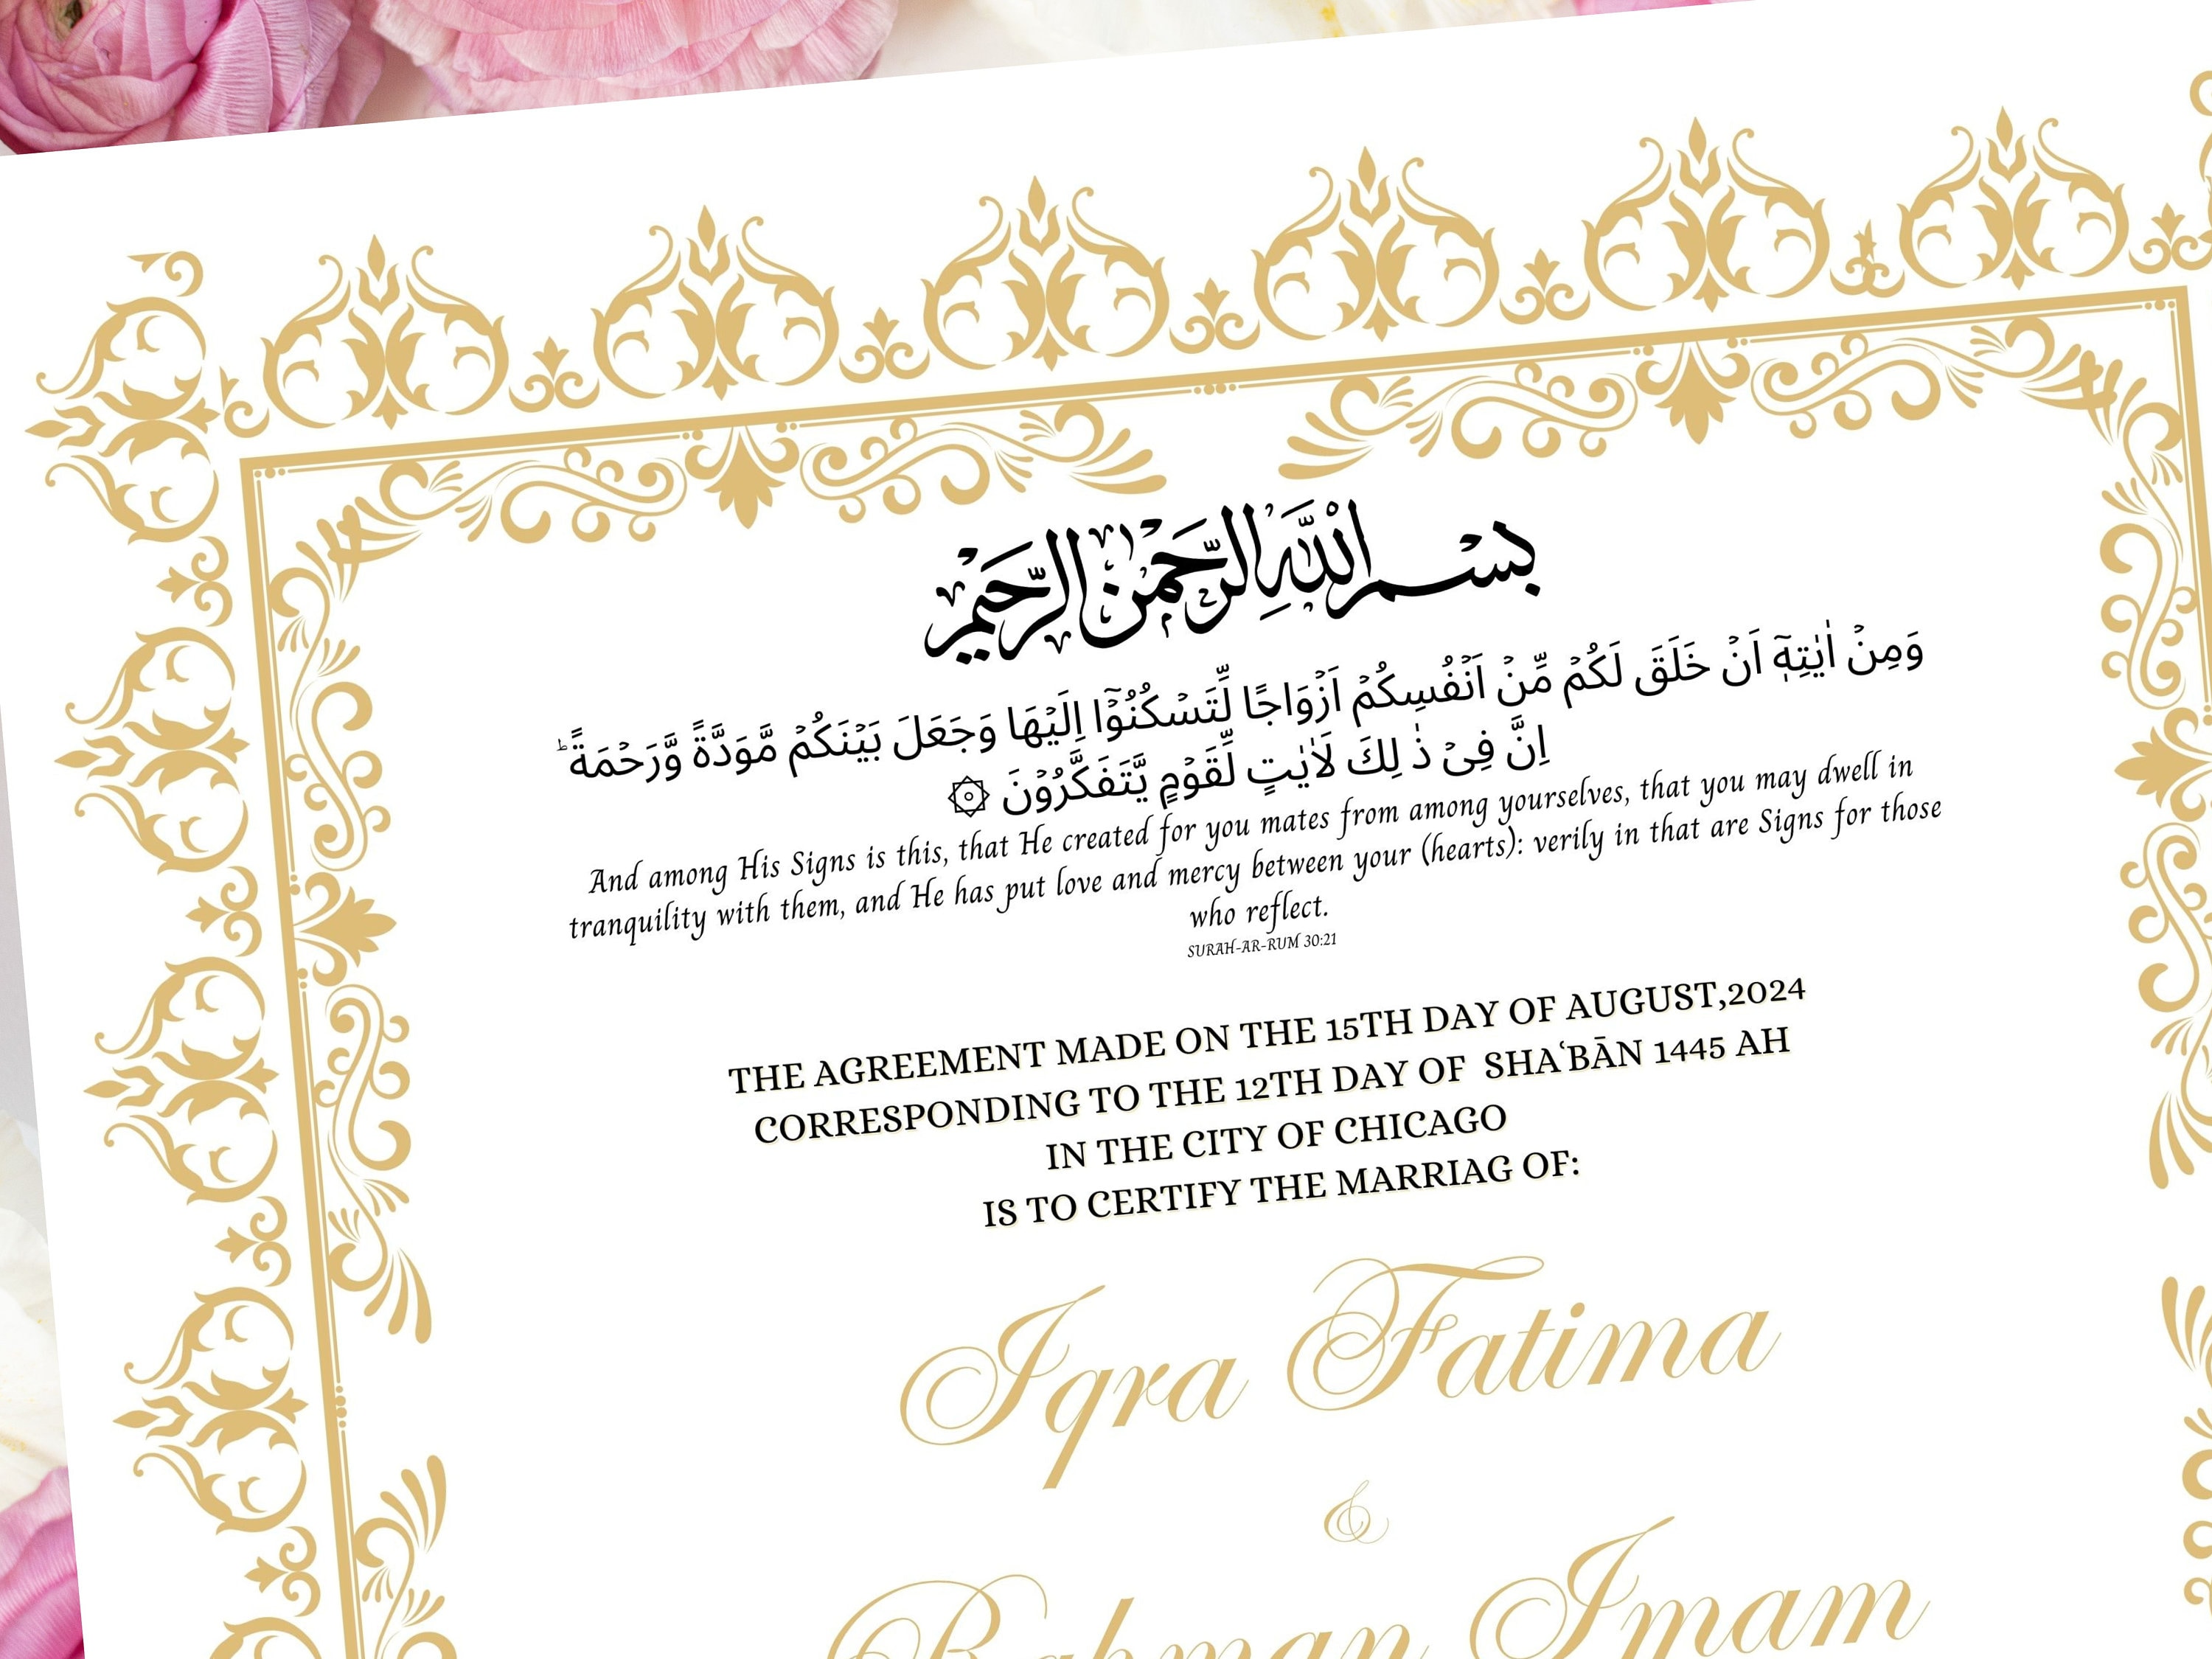 بسم الله الرحمن الرحيم
وَمِنۡ اٰيٰتِهٖۤ اَنۡ خَلَقَ لَكُمۡ مِّنۡ اَنۡفُسِكُمۡ اَزۡوَاجًا لِّتَسۡكُنُوۡۤا اِلَيۡهَا وَجَعَلَ بَيۡنَكُمۡ مَّوَدَّةً وَّرَحۡمَةً ؕ
اِنَّ فِىۡ ذٰ لِكَ لَاٰيٰتٍ لِّقَوۡمٍ يَّتَفَكَّرُوۡنَ ۞
And among His Signs is this, that He created for you mates from among yourselves, that you may dwell in
tranquility with them, and He has put love and mercy between your (hearts): verily in that are Signs for those
who reflect.
SURAH-AR-RUM 30:21
THE AGREEMENT MADE ON THE 15TH DAY OF AUGUST,2024
CORRESPONDING TO THE 12TH DAY OF SHAʿBĀN 1445 AH
IN THE CITY OF CHICAGO
IS TO CERTIFY THE MARRIAG OF:
Iqra Fatima
&
Rahman Imam